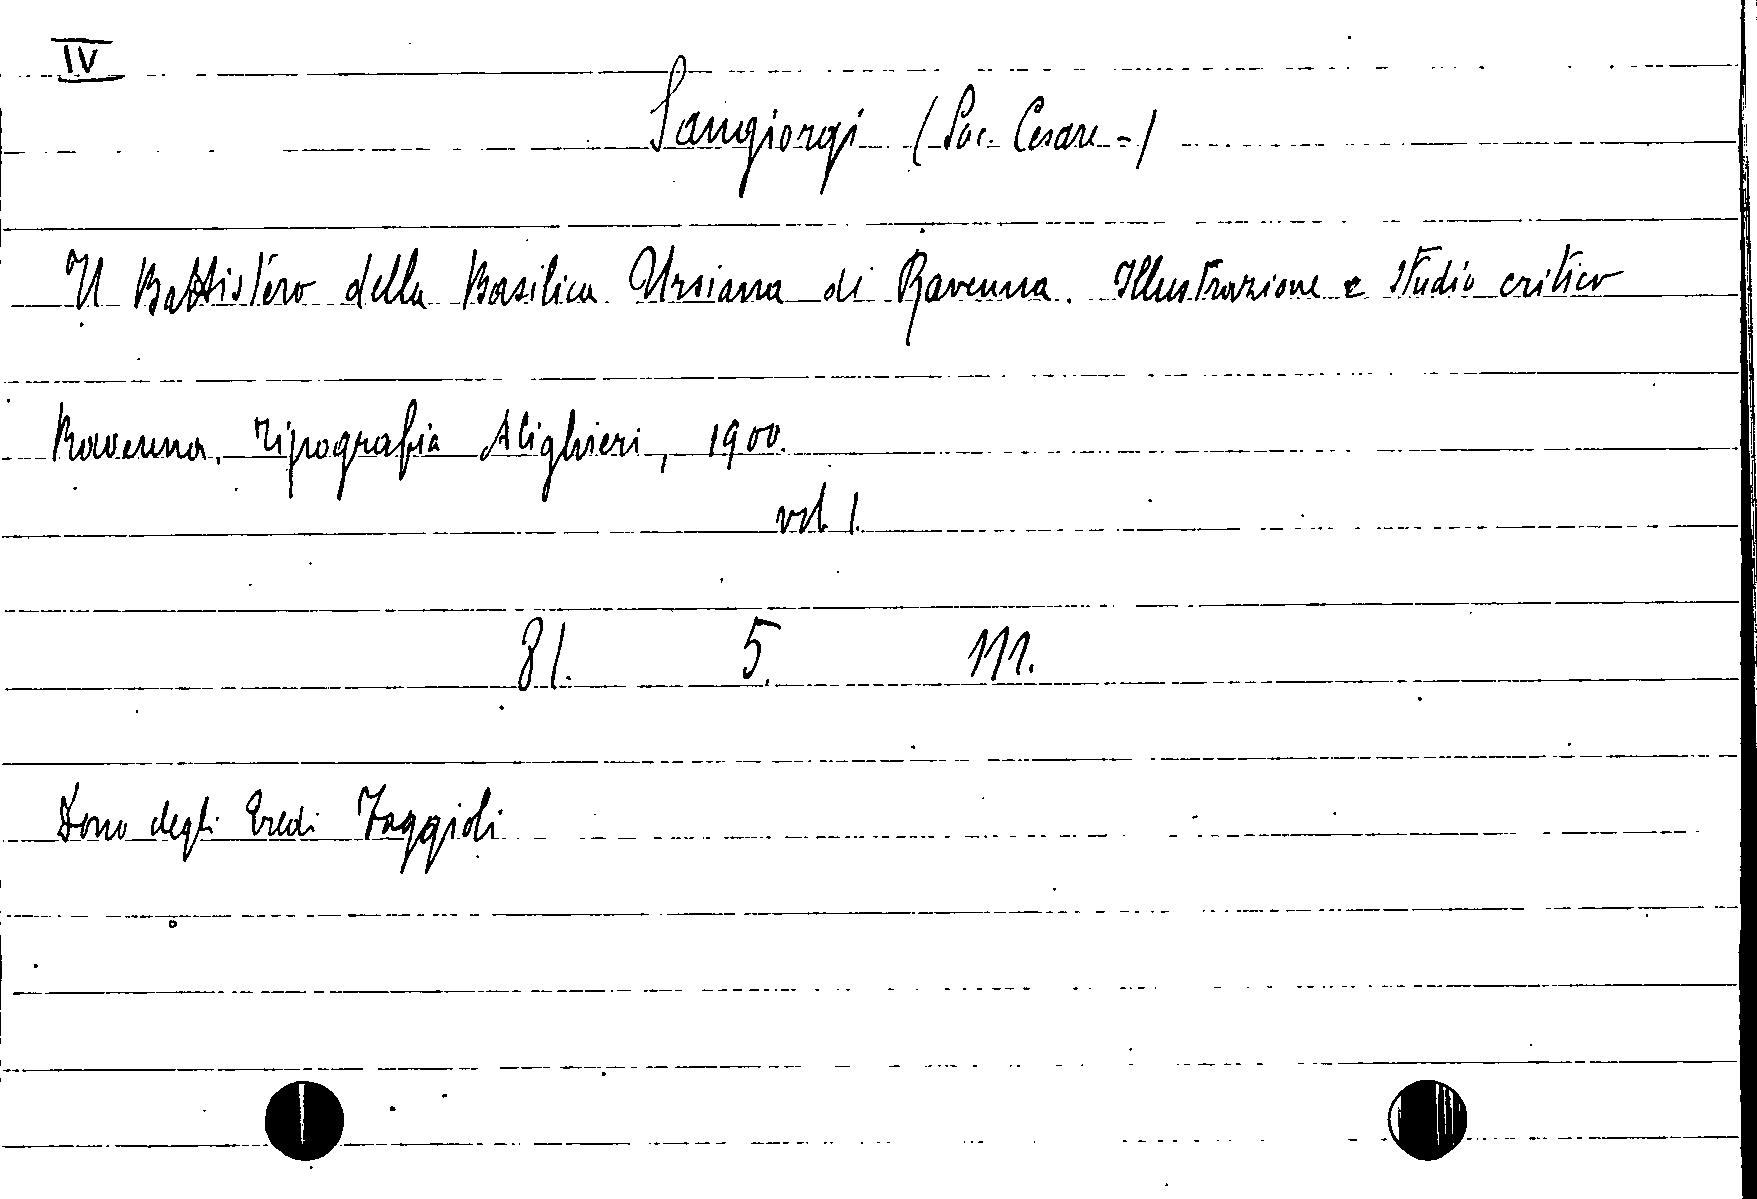 IV
Sangiorgi (Sac. Cesare -)
Il Battistero della Basilica Ursiana di Ravenna. Illustrazione e studio critico
Ravenna, Tipografia Alighieri, 1900.
vol. 1.
81. 5. 111.
Dono degli Eredi Faggioli